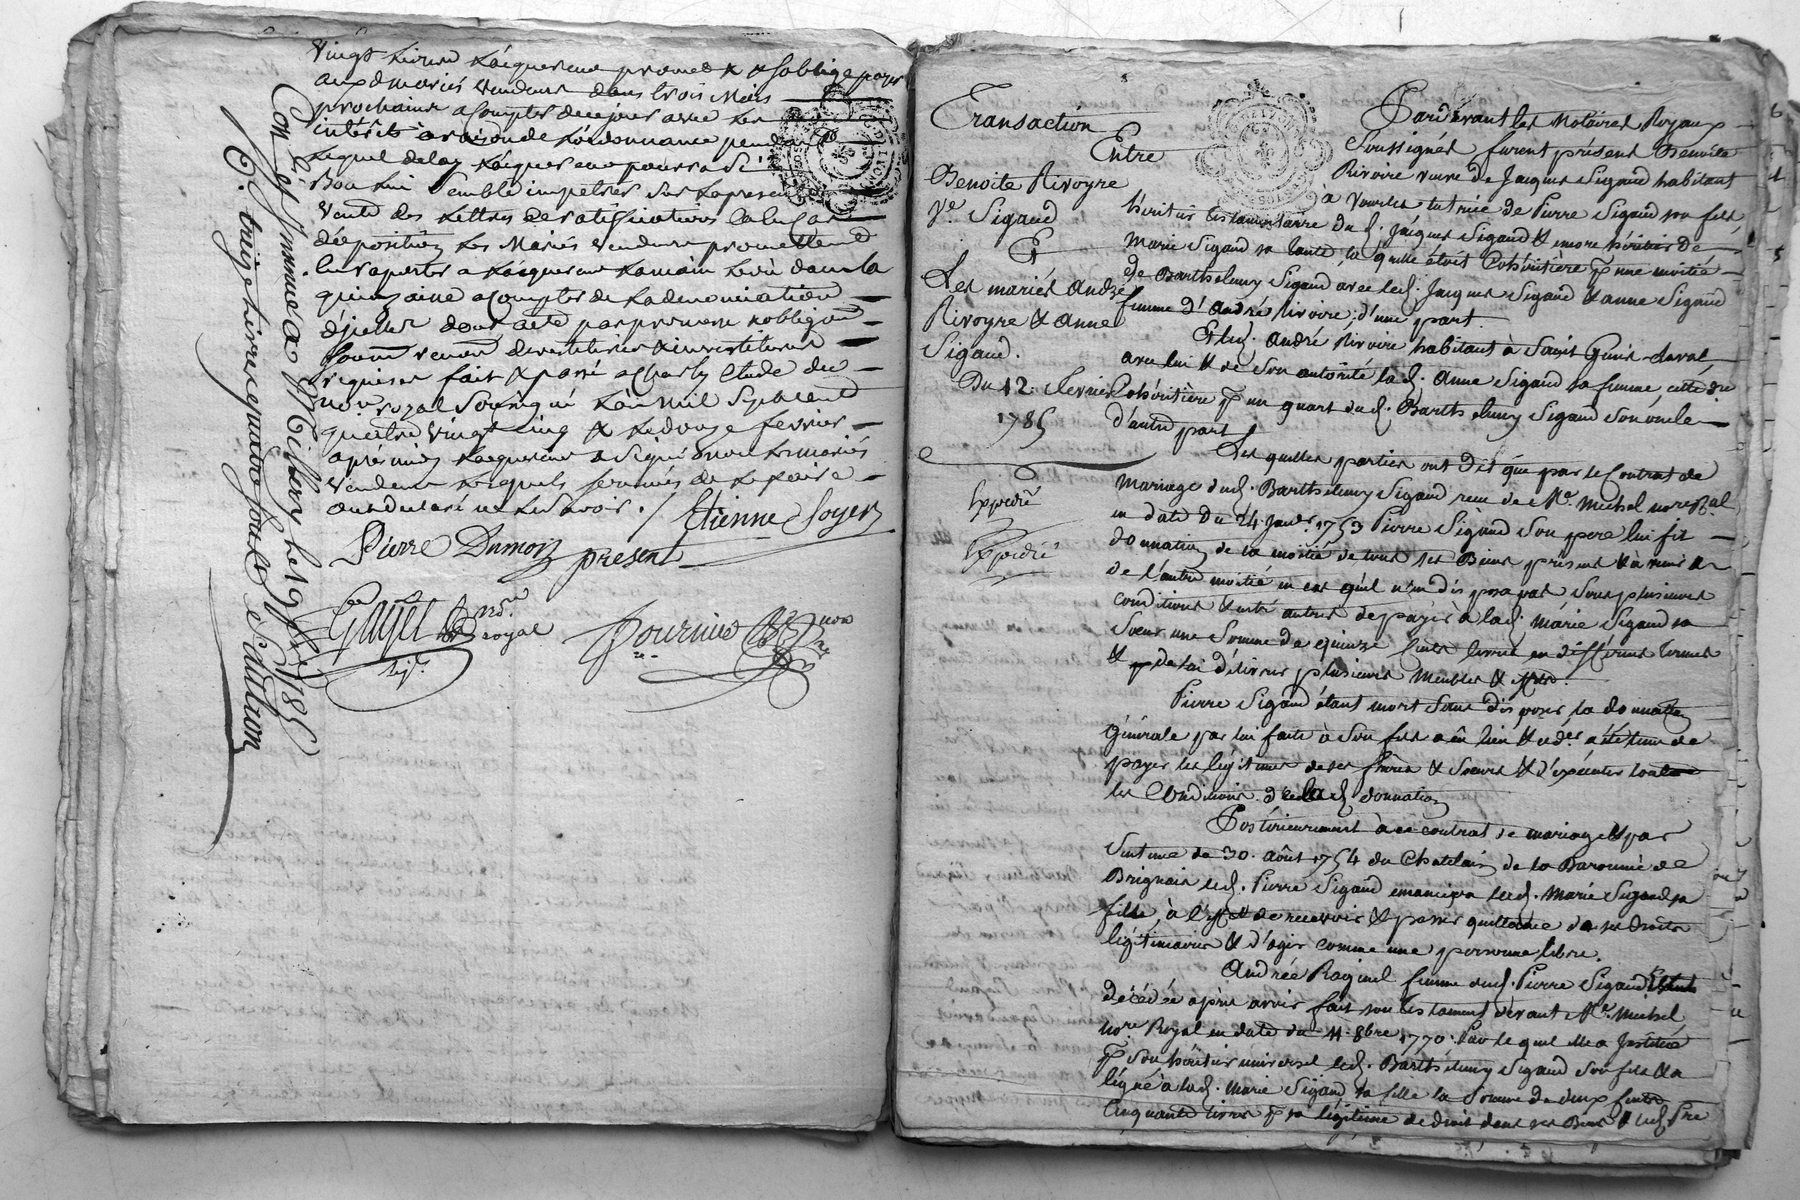 vingt livres L'acquereur promet & s'oblige payer
aux d mariés vendeurs dans trois Mois
prochains a Compter de ce jour avec les
intérêts a raison de L'ordonnance pendant
Lequel delay L'acquereur pourra Si
Bon Lui Semble impetrer Sur La presente
vente des Lettres de ratification
Les Mariés vendeurs promettent
raporter a L'acquereur Lamain Levée dans la
quinzaine a Compter de La denonciation
fait & passé a Charly Etude du
no.re royal Soussigné L'an Mil Sept cent
quatre vingt cinq & Le douze fevrier
après midy L'acquereur a Signé non Les mariés
vendeurs Lesquels de Le faire
ont declaré ne Le Savoir. /
Etienne Soyer
Pierre Dumon present
Gayet no.re royal
Fournier no.re
Con.lé et Inmué a Millery le 19 1785
R. treize livres quatre sols
Transaction
Entre
Benoite Rivoyre
V.e Sigaud
Et
Les mariés André
Rivoyre & Anne
Sigaud.
Du 12. fevrier
1785
Expedié
Expedié
Pardevant les Notaires Royaux
Soussignés furent présent Benoite
Rivoire veuve de Jacques Sigaud habitant
à Vourles tutrice de Pierre Sigaud son fils
héritier testamentaire dud. Jacques Sigaud & encore héritier de
Marie Sigaud sa tante, la quelle étoit Cohéritière p.r une moitié
de Barthelemy Sigaud avec led. Jacques Sigaud & anne Sigaud
femme d'André Rivoire; d'une part.
Et led. André Rivoire habitant à Saint Genis Laval
avec lui & de Son autorité lad. Anne Sigaud sa femme, cette d.re
Cohéritière p.r un quart dud. Barthelemy Sigaud Son oncle
d'autre part
Les quelles parties ont Dit que par le Contrat de
Mariage dud. Barthelemy Sigaud reçu de M.e Michel no.re Royal
en date Du 24. Janv.r 1753 Pierre Sigaud Son pere lui fit
donnation de la moitié de tous ses Biens présens & à venir &
de l'autre moitié en cas qu'il n'en disposa pas Sous plusieurs
conditions & entr autres de payer à lad. Marie Sigaud sa
Sœur une Somme de quinze Cents livres en differens termes
& de lui délivrer plusieurs Meubles & effets.
Pierre Sigaud étant mort Sans disposer la donnation
Générale par lui faite à Son fils a eû lieu & a été tenu de
payer les légitimes de ses freres & Sœurs & d'exécuter toutes
les Conditions de lad. donnation
Postérieurement à ce contrat de mariage & par
Sentence du 30. août 1754 du Chatelain de la Baronnie de
Brignais led. Pierre Sigaud emancipa lad. Marie Sigaud sa
fille, à l'effet de recevoir & passer quittance de ses droits
légitimaires & d'agir comme une personne libre.
Andrée Raginel femme dud. Pierre Sigaud
décédée après avoir fait son testament devant M.e Michel
no.re Royal en date du 11. 8bre 1770. Par le quel elle a Institué
p.r son héritier universel led. Barthelemy Sigaud Son fils & a
légué à lad. Marie Sigaud sa fille la Somme de deux Cents
Cinquante livres p.r sa légitime de droit dans ses Biens